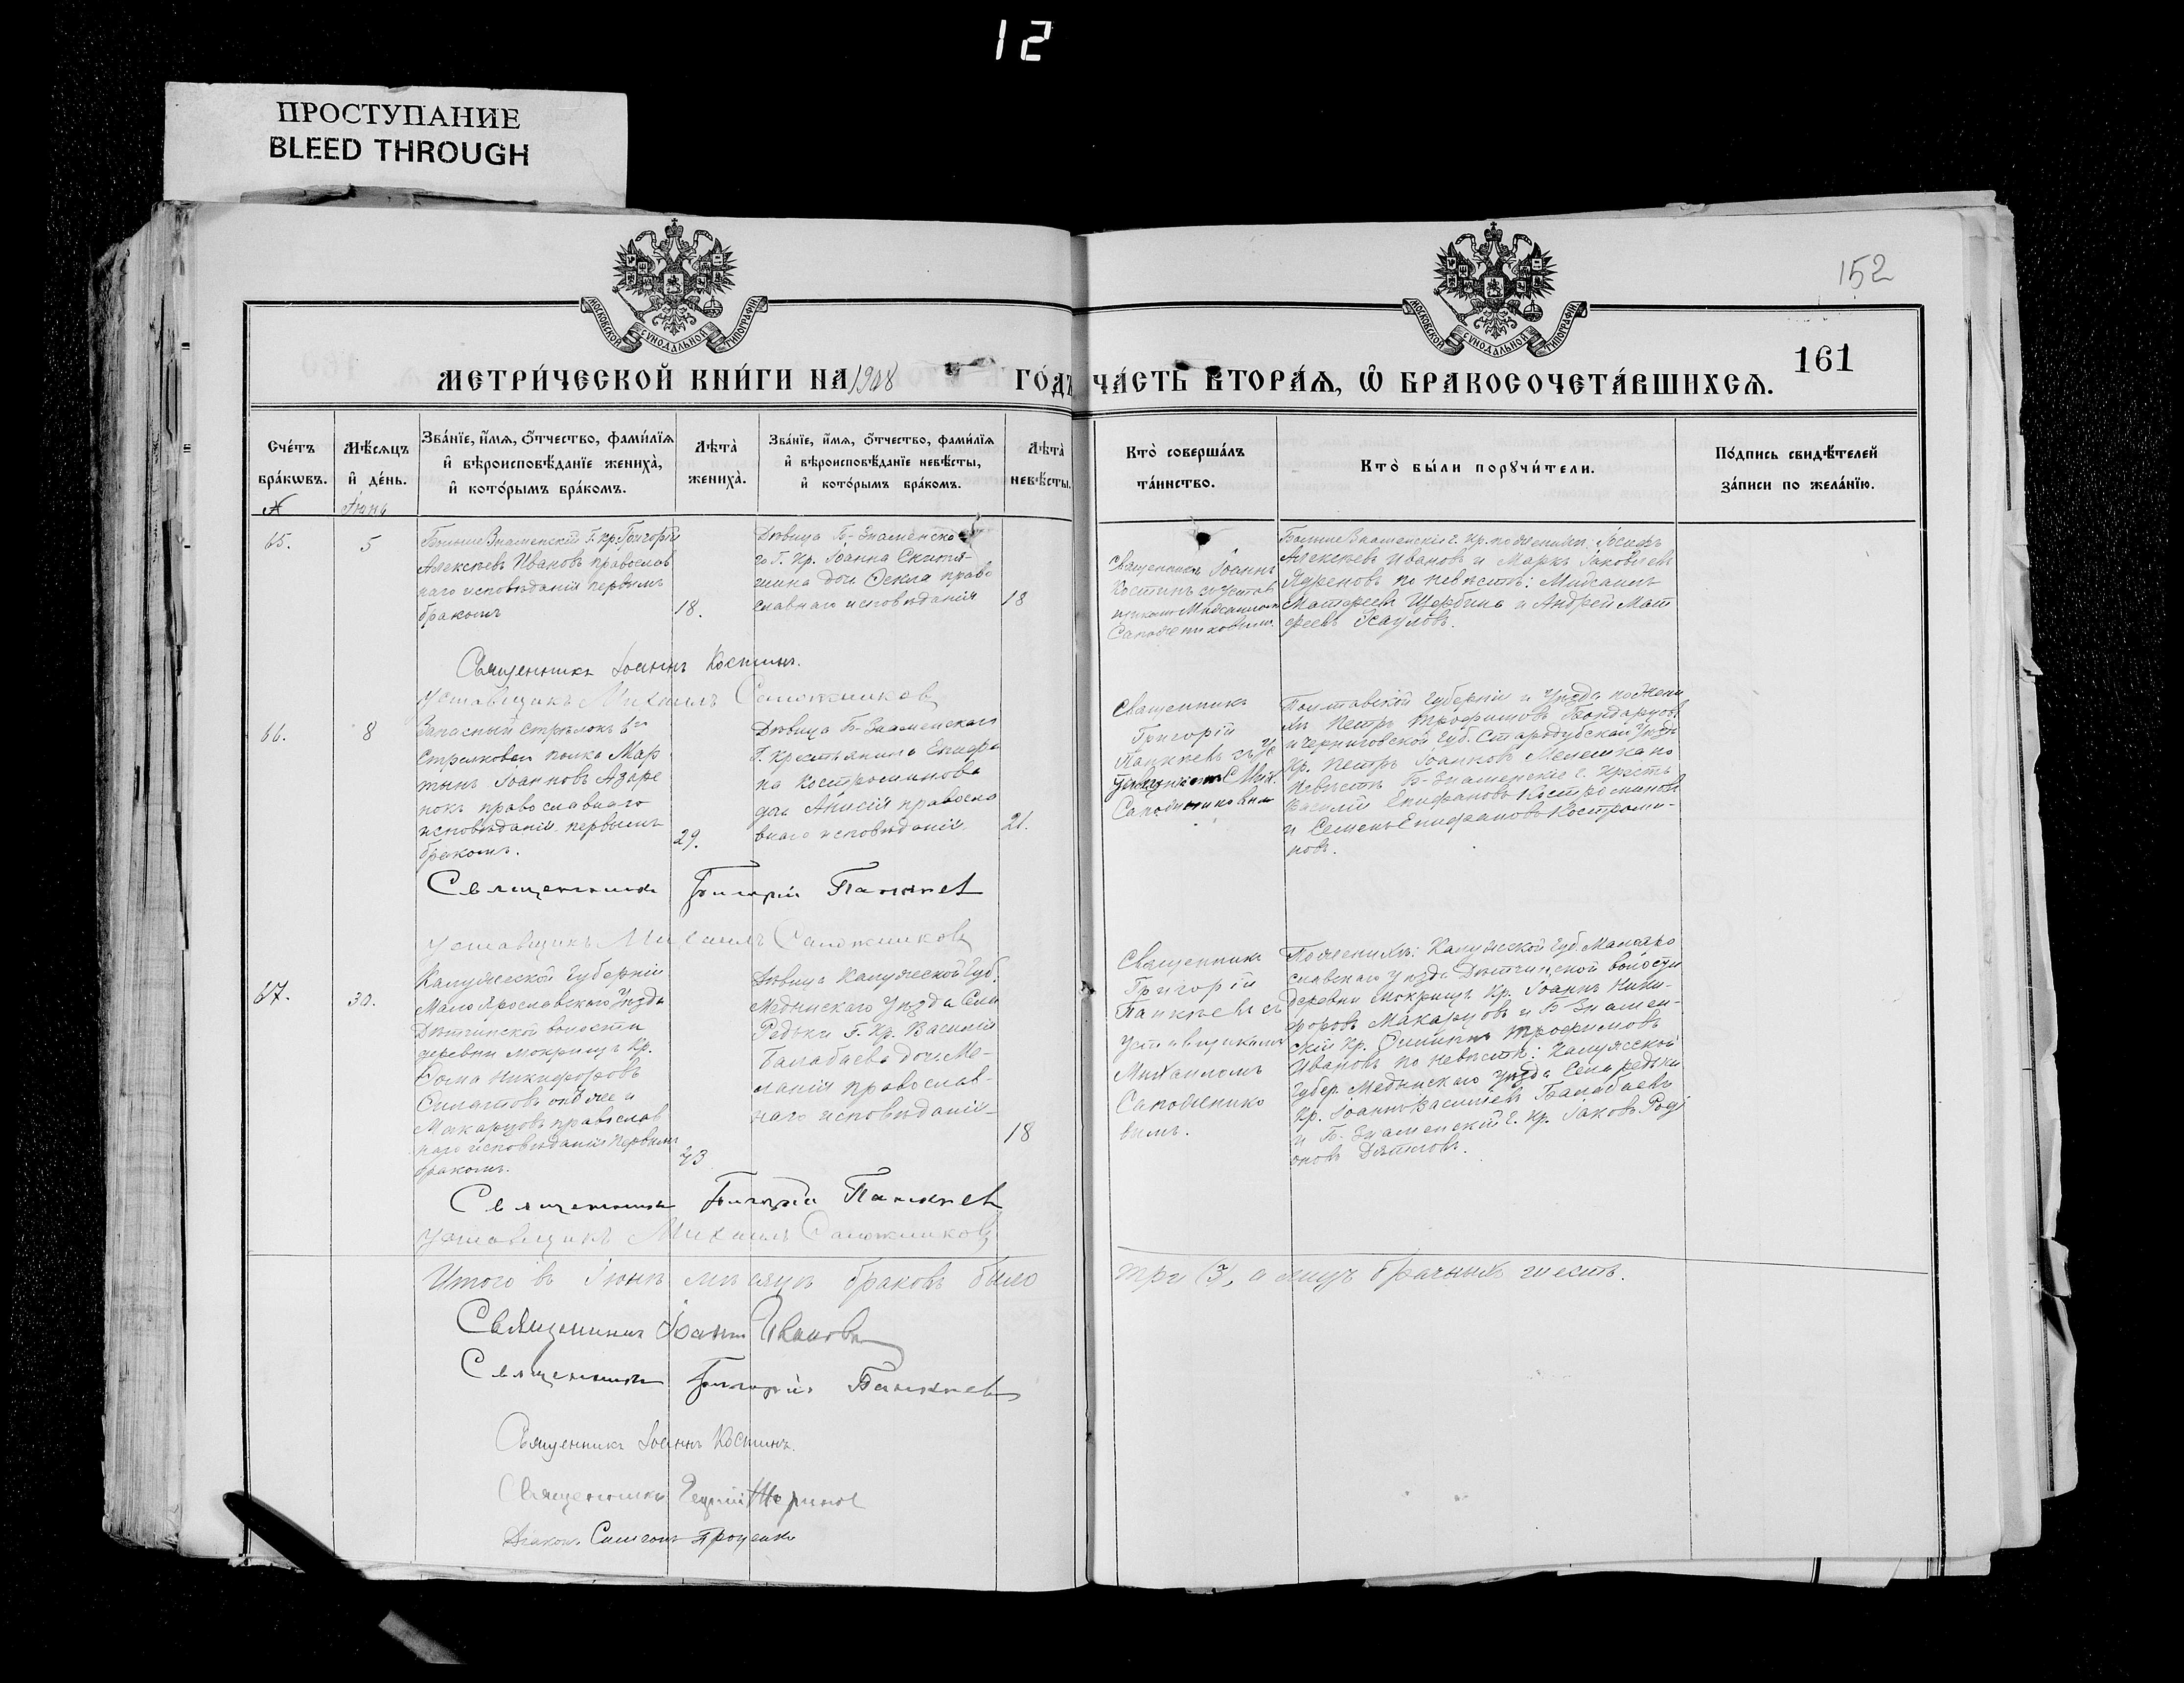 12
ПРОСТУПАНИЕ
BLEED THROUGH
152
161
МОСКОВСКОЙ СУНОДАЛЬНОЙ ТИПОГРАФІИ
МОСКОВСКОЙ СУНОДАЛЬНОЙ ТИПОГРАФІИ
МЕТРИ́ЧЕСКОЙ КНИ́ГИ НА 1908 ГО́ДЪ ЧА́СТЬ ВТОРА́Ѧ, Ѽ БРАКОСОЧЕТА́ВШИХСѦ.
Сче́тъ
бра́кѡвъ.
Мѣ́сѧцъ
и҆ де́нь.
Зва́нїе, и҆́мѧ, ѻ҆́тчество, фами́лїѧ
и҆ вѣроисповѣ́данїе жениха̀,
и҆ кото́рымъ бра́комъ.
Лѣта̀
жениха̀.
Зва́нїе, и҆́мѧ, ѻ҆́тчество, фами́лїѧ
и҆ вѣроисповѣ́данїе невѣ́сты,
и҆ кото́рымъ бра́комъ.
Лѣта̀
невѣ́сты.
Кто̀ соверша́лъ
та́инство.
Кто̀ бы́ли порꙋчи́тели.
По́дпись свидѣ́телей
за́писи по жела́нїю.
Іюнь
65.
5
БольшеЗнаменскій Г. кр. Григорій
Алексѣевъ Ивановъ православ
наго исповѣданія первымъ
бракомъ
18.
Дѣвица Б-Знаменска
го Г. Кр. Іоанна
дочь Ѳекла право
славнаго исповѣданія
18
Священникъ Іоаннъ
Костинъ съ устав
щикомъ Михаиломъ
Сапожниковымъ
БольшеЗнаменскіе г. Кр. по женихѣ: Іосифъ
Алексѣевъ Ивановъ и Маркъ Іаковлевъ
Ядреновъ по невѣстѣ: Михаилъ
Матѳеевъ Щербина и Андрей Мат
ѳеевъ
Священникъ Іоаннъ Костинъ.
Уставщикъ Михаилъ Сапожниковъ
66.
8
Запасный стрѣлокъ 6го
Стрѣлковаго полка Мар
тынъ Іоанновъ Азаре
нокъ православнаго
исповѣданія первымъ
бракомъ.
29.
Дѣвица Б-Знаменскаго
Г. крестьянина Епифа
на Костроминова
дочь Анисія правосла
внаго исповѣданія
21.
Священникъ
Григорій
Панкѣевъ съ Ус
С Мих.
Сапожниковымъ
Полтавской губерніи и Уѣзда по жени
хѣ Петръ Трофимовъ Бондарцовъ
и Черниговской Губ. Стародубскаго Уѣзда
Кр. Петръ Іоанновъ Мелешка по
невѣстѣ Б-Знаменскіе г. крест.
Василій Епифановъ Костроминовъ
и Семенъ Епифановъ Костроми-
новъ.
Священникъ Григорій Панкѣевъ
Уставщикъ Михаилъ Сапожниковъ
67.
30.
Калужской Губерніи
МалоЯрославскаго Уѣзда
Дѣтчинской волости
деревни Мокрищъ Кр.
Ѳома Никифоровъ
Филатовъ онъ же и
Макарцовъ православ
наго исповѣданія первымъ
бракомъ.
23
Дѣвица Калужской Губ.
Медынскаго Уѣзда Села
Редьки Г. Кр. Василія
Балабаева дочь Ме-
ланія православ-
наго исповѣданія-
18
Священникъ
Григорій
Панкѣевъ съ
Уставщикомъ
Михаиломъ
Сапожнико
вымъ.
По женихѣ: Калужской Губ. Малояро
славскаго Уѣзда Дѣтчинской волости
деревни Мокрищъ Кр. Іоаннъ Ники-
форовъ Макарцовъ и Б-Знамен-
скій Кр. Трофимовъ
Ивановъ по невѣстѣ: Калужской
Губер. Медынскаго Уѣзда Села Редьки
Кр. Іоаннъ Васильевъ Балабаевъ
и Б-Знаменскій г. Кр. Іаковъ Роді
оновъ
Священникъ Григорій Панкѣевъ
Уставщикъ Михаилъ Сапожниковъ
Итого въ Іюнѣ мѣсяцѣ браковъ было три (3), а лицъ брачныхъ шесть.
Священникъ Іоаннъ Ивановъ
Священникъ Григорій Панкѣевъ
Священникъ Іоаннъ Костинъ.
Священникъ
Діаконъ Проценко